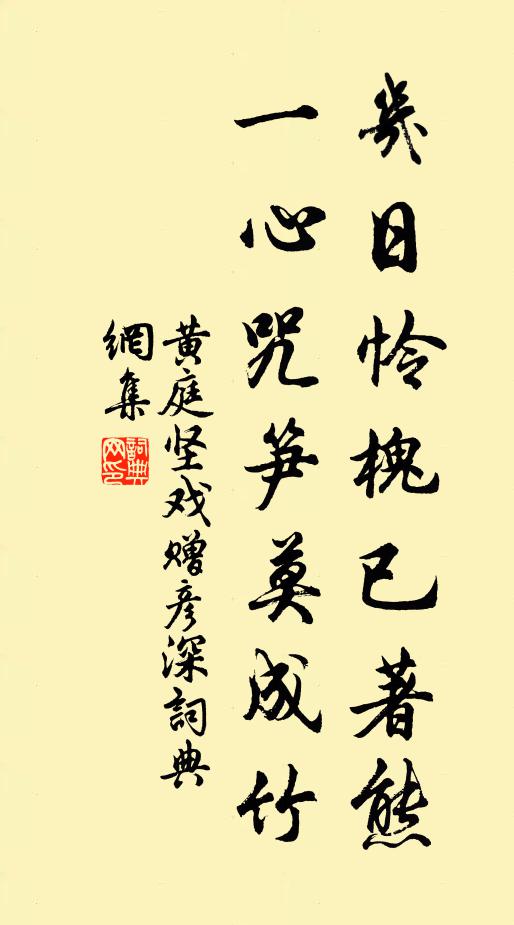 幾日怜槐已著熊
一心咒笋莫成竹
黄庭坚戏赠彦深詞典
網集
詞典网印